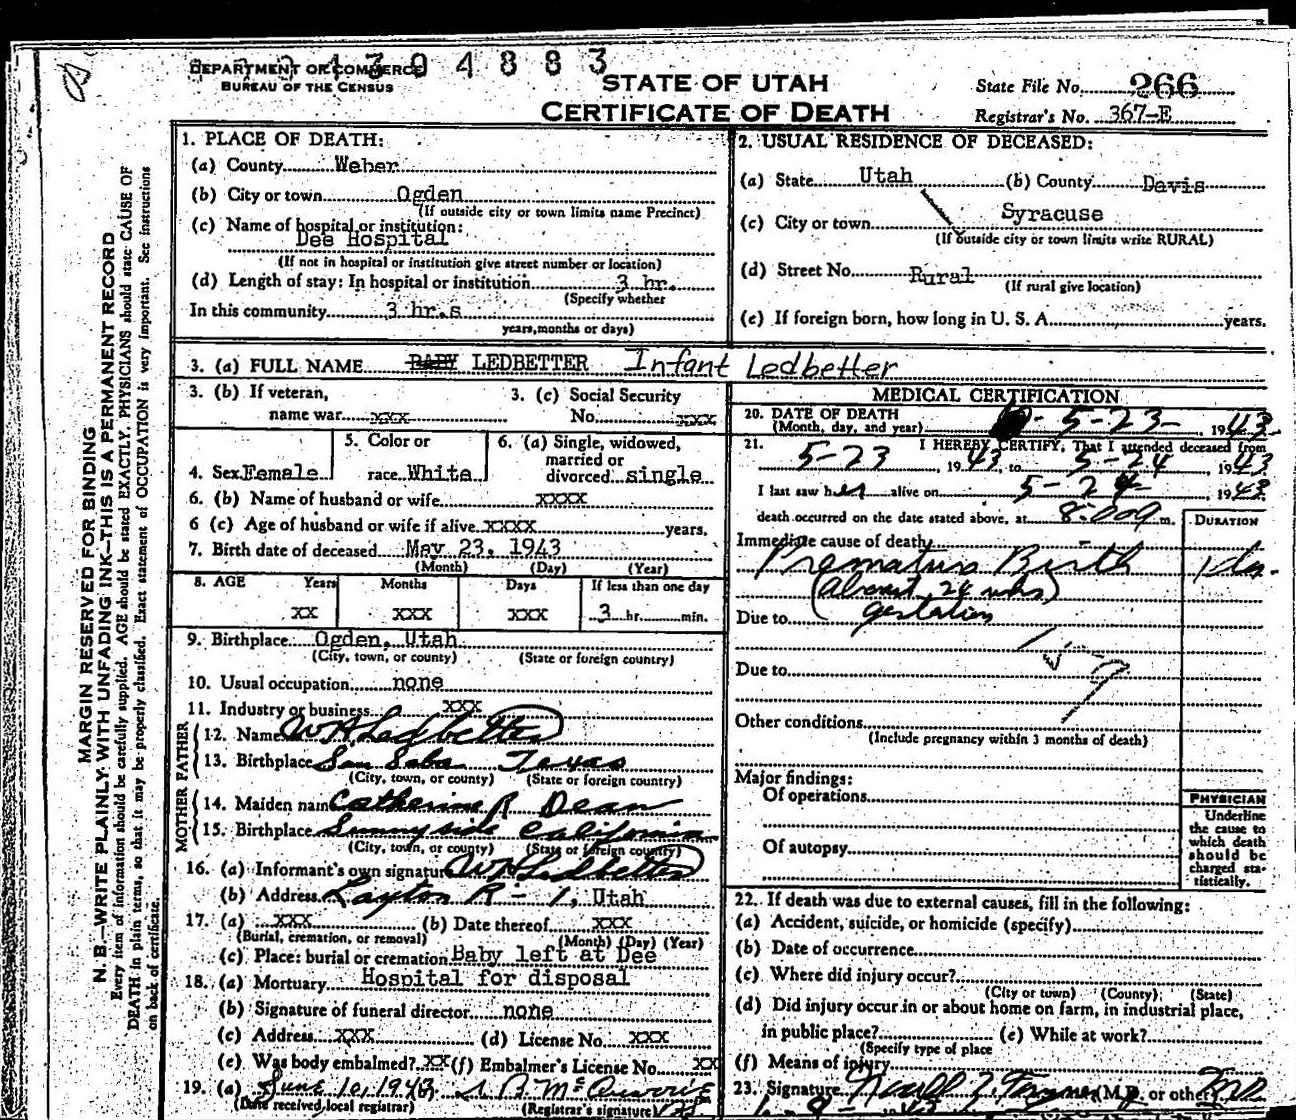 1304883
DEPARTMENT OF COMMERCE
BUREAU OF THE CENSUS
STATE OF UTAH
CERTIFICATE OF DEATH
State File No. 266
Registrar's No. 367-E
MARGIN RESERVED FOR BINDING
N. B.—WRITE PLAINLY WITH UNFADING INK—THIS IS A PERMANENT RECORD
Every item of information should be carefully supplied. AGE should be stated EXACTLY. PHYSICIANS should state CAUSE OF
DEATH in plain terms, so that it may be properly classified. Exact statement of OCCUPATION is very important. See instructions
on back of certificate.
1. PLACE OF DEATH:
(a) County Weber
(b) City or town Ogden
(If outside city or town limits name Precinct)
(c) Name of hospital or institution:
Dee Hospital
(If not in hospital or institution give street number or location)
(d) Length of stay: In hospital or institution 3 hr.
(Specify whether
In this community 3 hr.s
years, months or days)
2. USUAL RESIDENCE OF DECEASED:
(a) State Utah (b) County Davis
(c) City or town Syracuse
(If outside city or town limits write RURAL)
(d) Street No. Rural
(If rural give location)
(e) If foreign born, how long in U. S. A. years.
3. (a) FULL NAME BABY LEDBETTER Infant Ledbetter
3. (b) If veteran,
name war xxx
3. (c) Social Security
No. xxx
4. Sex Female
5. Color or
race White
6. (a) Single, widowed,
married or
divorced single
6. (b) Name of husband or wife xxxx
6 (c) Age of husband or wife if alive xxxx years.
7. Birth date of deceased May 23, 1943
(Month) (Day) (Year)
8. AGE Years Months Days If less than one day
xx xxx xxx 3 hr. min.
9. Birthplace Ogden, Utah
(City, town, or county) (State or foreign country)
10. Usual occupation none
11. Industry or business xxx
FATHER
12. Name W H Ledbetter
13. Birthplace San Saba Texas
(City, town, or county) (State or foreign country)
MOTHER
14. Maiden name Catherine R Dean
15. Birthplace Sunnyside California
(City, town, or county) (State or foreign country)
16. (a) Informant's own signature W H Ledbetter
(b) Address Layton R - 1, Utah
17. (a) xxx (b) Date thereof xxx
(Burial, cremation, or removal) (Month) (Day) (Year)
(c) Place: burial or cremation Baby left at Dee
18. (a) Mortuary Hospital for disposal
(b) Signature of funeral director none
(c) Address xxx (d) License No. xxx
(e) Was body embalmed? xx (f) Embalmer's License No. xx
19. (a) June 10, 1943
(Date received local registrar) (Registrar's signature)
MEDICAL CERTIFICATION
20. DATE OF DEATH
(Month, day, and year) 5-23-, 1943
21. I HEREBY CERTIFY, That I attended deceased from
5-23, 1943, to 5-24, 1943
I last saw her alive on 5-24-, 1943
death occurred on the date stated above, at 8:00 m.
DURATION
Immediate cause of death
Premature Birth 1 da.
(About 26 wks)
Due to gestation
159
Due to
Other conditions
(Include pregnancy within 3 months of death)
Major findings:
Of operations
Of autopsy
PHYSICIAN
Underline
the cause to
which death
should be
charged sta-
tistically.
22. If death was due to external causes, fill in the following:
(a) Accident, suicide, or homicide (specify)
(b) Date of occurrence
(c) Where did injury occur?
(City or town) (County) (State)
(d) Did injury occur in or about home on farm, in industrial place,
in public place? (e) While at work?
(Specify type of place
(f) Means of injury
23. Signature (M.D. or other) M.D.